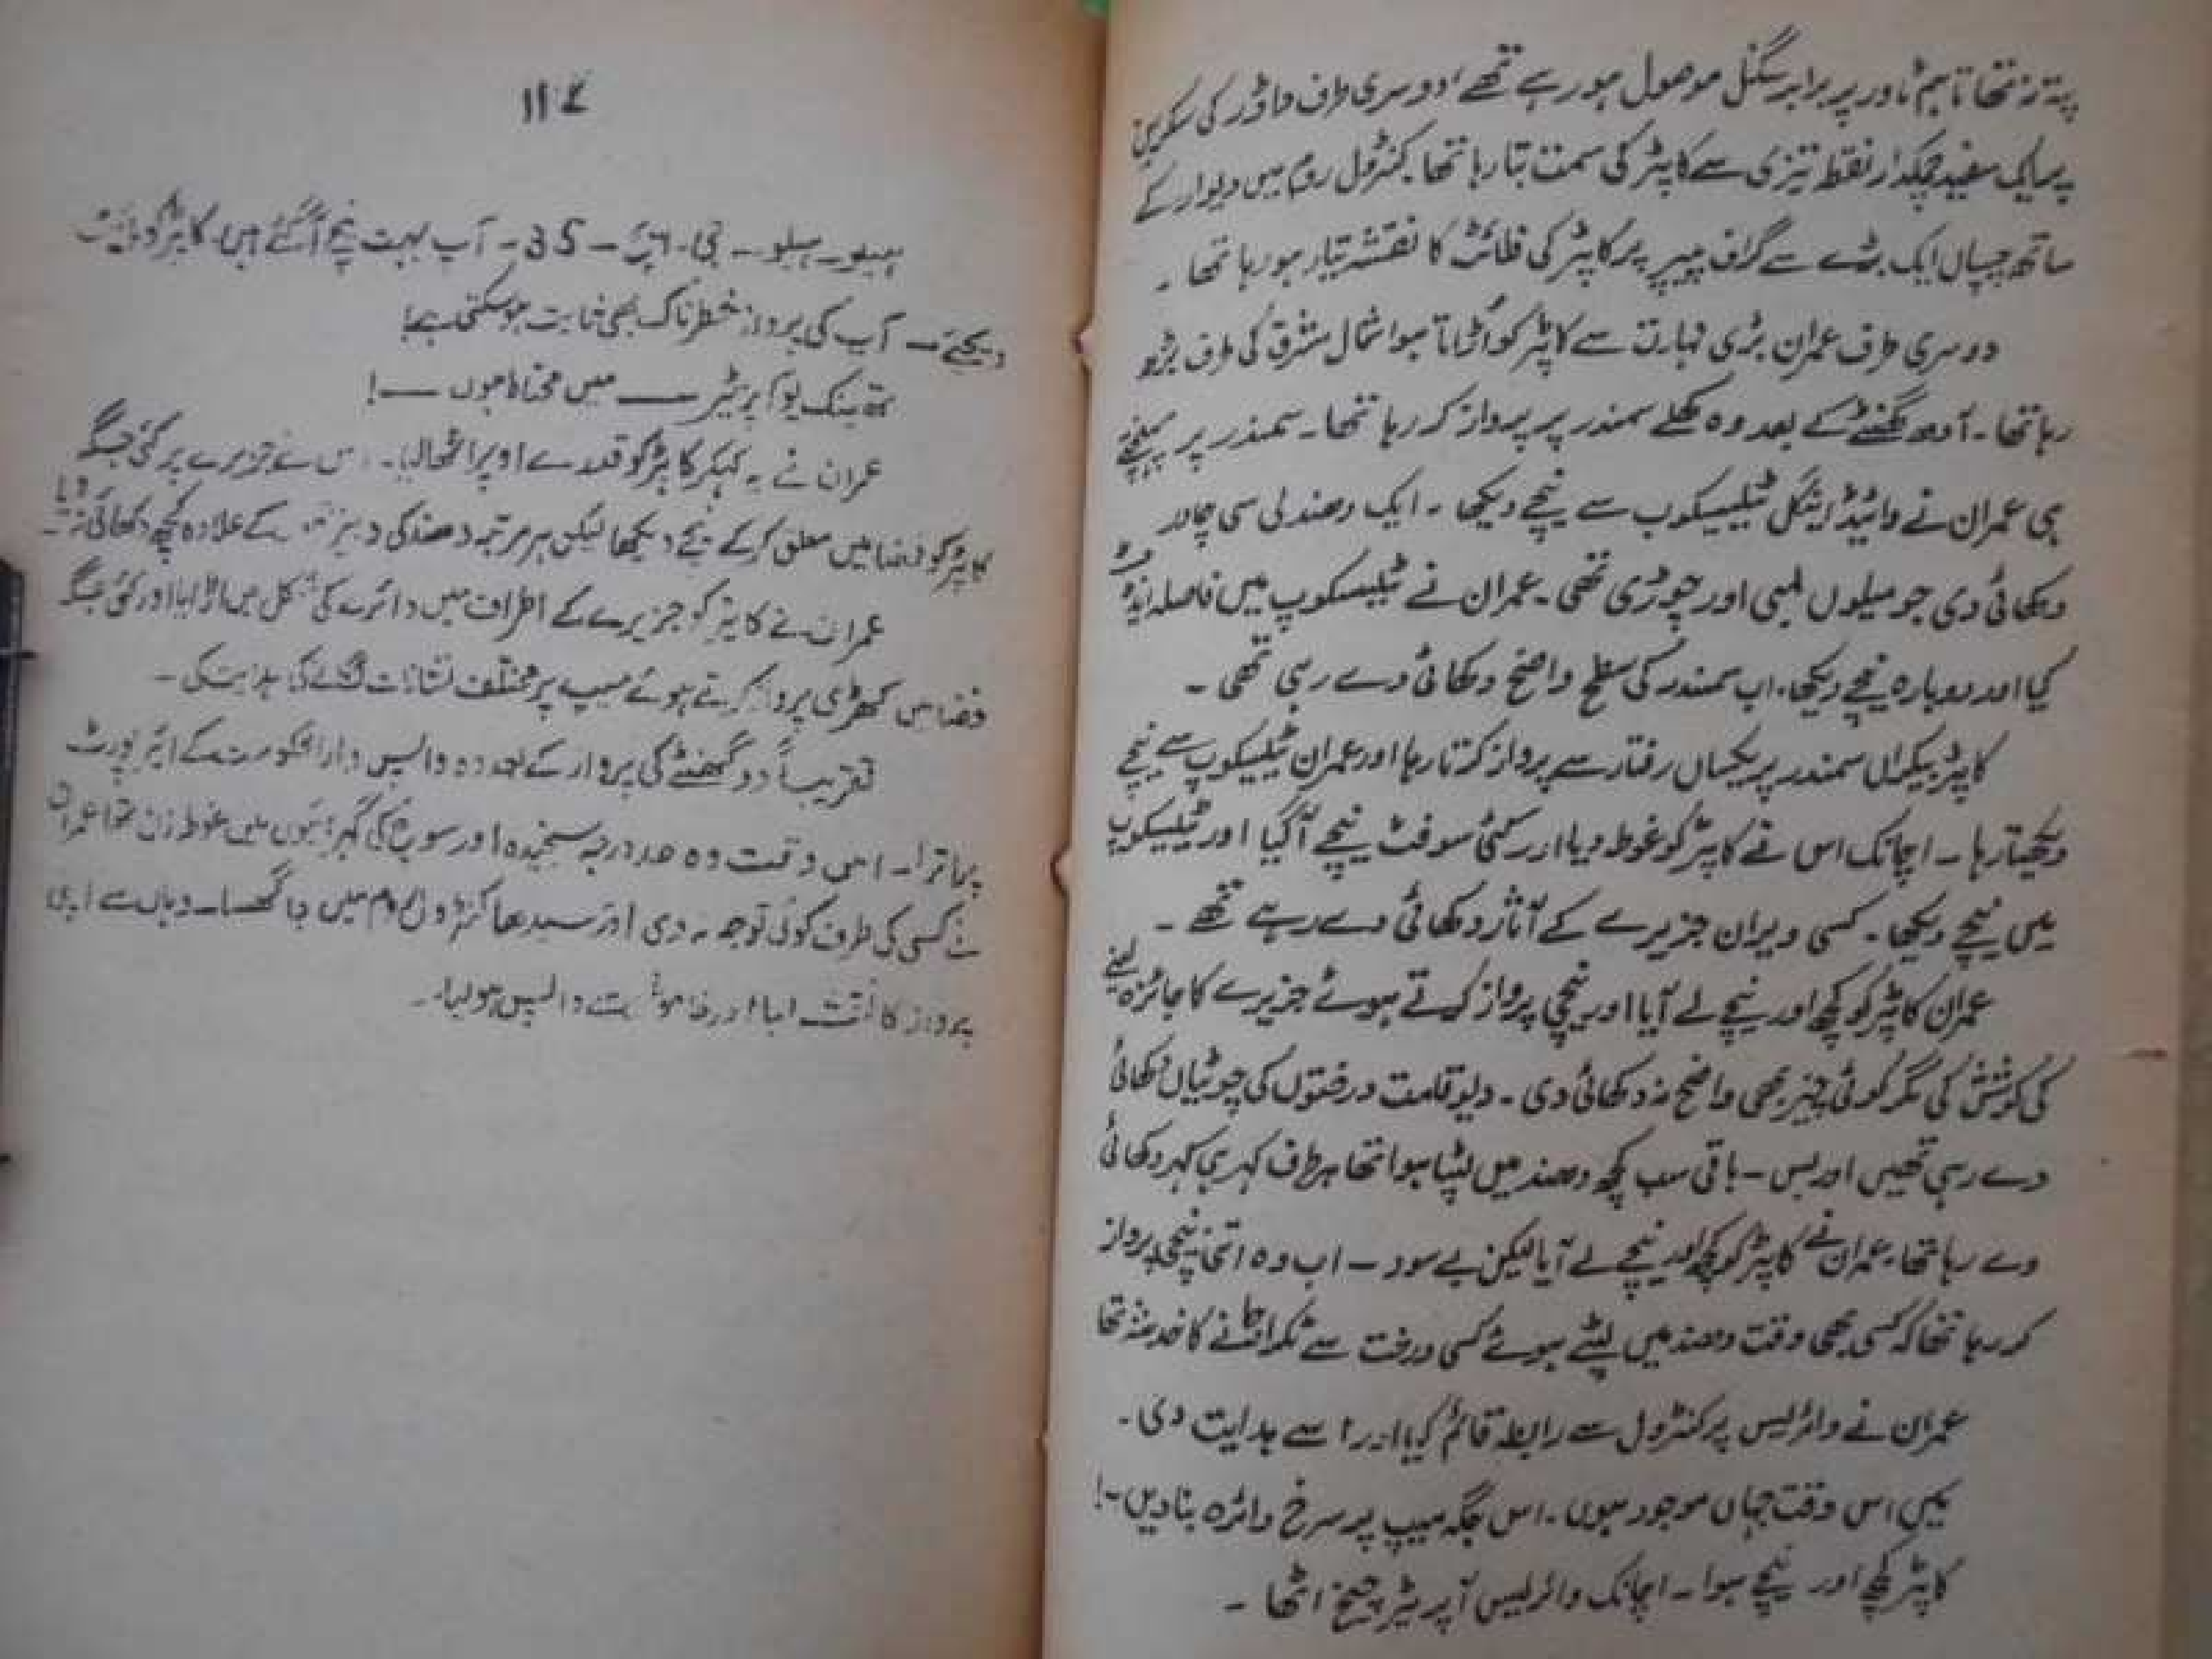 پتہ نہ تھا تاہم ٹاور پر برابر سگنل موصول ہو رہے تھے، دوسری طرف کی سکرین
پر ایک سفید چمکدار نقطہ تیزی سے کاپٹر کی سمت بتا رہا تھا۔ کنٹرول روم میں دیوار کے
ساتھ چسپاں ایک بڑے سے گراف پیپر پر کاپٹر کی فلائٹ کا نقشہ تیار ہو رہا تھا۔
دوسری طرف عمران بڑی مہارت سے کاپٹر کو اُڑاتا ہوا شمال مشرق کی طرف بڑھ
رہا تھا۔ آدھ گھنٹے کے بعد وہ کھلے سمندر پر پرواز کر رہا تھا۔ سمندر پر پہنچتے
ہی عمران نے وائیڈ اینگل ٹیلیسکوپ سے نیچے دیکھا۔ ایک دھندلی سی چادر
دکھائی دی جو میلوں لمبی اور چوڑی تھی۔ عمران نے ٹیلیسکوپ میں فاصلہ ایڈجسٹ
کیا اور دوبارہ نیچے دیکھا، اب سمندر کی سطح واضح دکھائی دے رہی تھی۔
کاپٹر بیکراں سمندر پر یکساں رفتار سے پرواز کرتا رہا اور عمران ٹیلیسکوپ سے نیچے
دیکھتا رہا۔ اچانک اس نے کاپٹر کو غوطہ دیا اور کئی سو فٹ نیچے آ گیا اور ٹیلیسکوپ
میں نیچے دیکھا۔ کسی ویران جزیرے کے آثار دکھائی دے رہے تھے۔
عمران کاپٹر کو کچھ اور نیچے لے آیا اور نیچی پرواز کرتے ہوئے جزیرے کا جائزہ لینے
کی کوشش کی مگر کوئی چیز بھی واضح نہ دکھائی دی۔ دیو قامت درختوں کی چوٹیاں دکھائی
دے رہی تھیں اور بس۔ باقی سب کچھ دھند میں لپٹا ہوا تھا ہر طرف کہر ہی کہر دکھائی
دے رہا تھا۔ عمران نے کاپٹر کو کچھ اور نیچے لے آیا لیکن بے سود۔ اب وہ اتنی نیچی پرواز
کر رہا تھا کہ کسی بھی وقت دھند میں لپٹے ہوئے کسی درخت سے ٹکرا جانے کا خدشہ تھا
عمران نے وائرلیس پر کنٹرول سے رابطہ قائم کیا اور اسے ہدایت دی۔
میں اس وقت جہاں موجود ہوں۔ اس جگہ میپ پر سرخ دائرہ بنا دیں۔!
کاپٹر کچھ اور نیچے ہوا۔ اچانک وائرلیس آپریٹر چیخ اٹھا۔
۱۱۷
ہیلو۔ ہیلو۔ جی۔ ایچ۔ 35۔ آپ بہت نیچے آ گئے ہیں۔ کاپٹر کو
دیجئے۔ آپ کی پرواز خطرناک بھی ثابت ہو سکتی ہے!
تھینک یو آپریٹر — میں محتاط ہوں —!
عمران نے یہ کہہ کر کاپٹر کو قدرے اوپر اٹھا لیا۔ اس نے جزیرے پر کئی جگہ
کاپٹر کو فضا میں معلق کر کے نیچے دیکھا لیکن ہر مرتبہ دھند کی دبیز کے علاوہ کچھ دکھائی نہ دیا
عمران نے کاپٹر کو جزیرے کے اطراف میں دائرے کی شکل میں اڑایا اور کئی جگہ
فضا میں کھڑی پرواز کرتے ہوئے میپ پر مختلف نشانات لگانے کی ہدایت کی۔
تقریباً دو گھنٹے کی پرواز کے بعد وہ واپس دارالحکومت کے ایئر پورٹ
پر اترا۔ اس وقت وہ حد درجہ سنجیدہ اور سوچ کی گہرائیوں میں غوطہ زن تھا عمران
نے کسی کی طرف کوئی توجہ نہ دی اور سیدھا کنٹرول روم میں جا گھسا۔ وہاں سے اپنی
پرواز کا نقشہ لیا اور خاموشی سے واپس ہو لیا۔